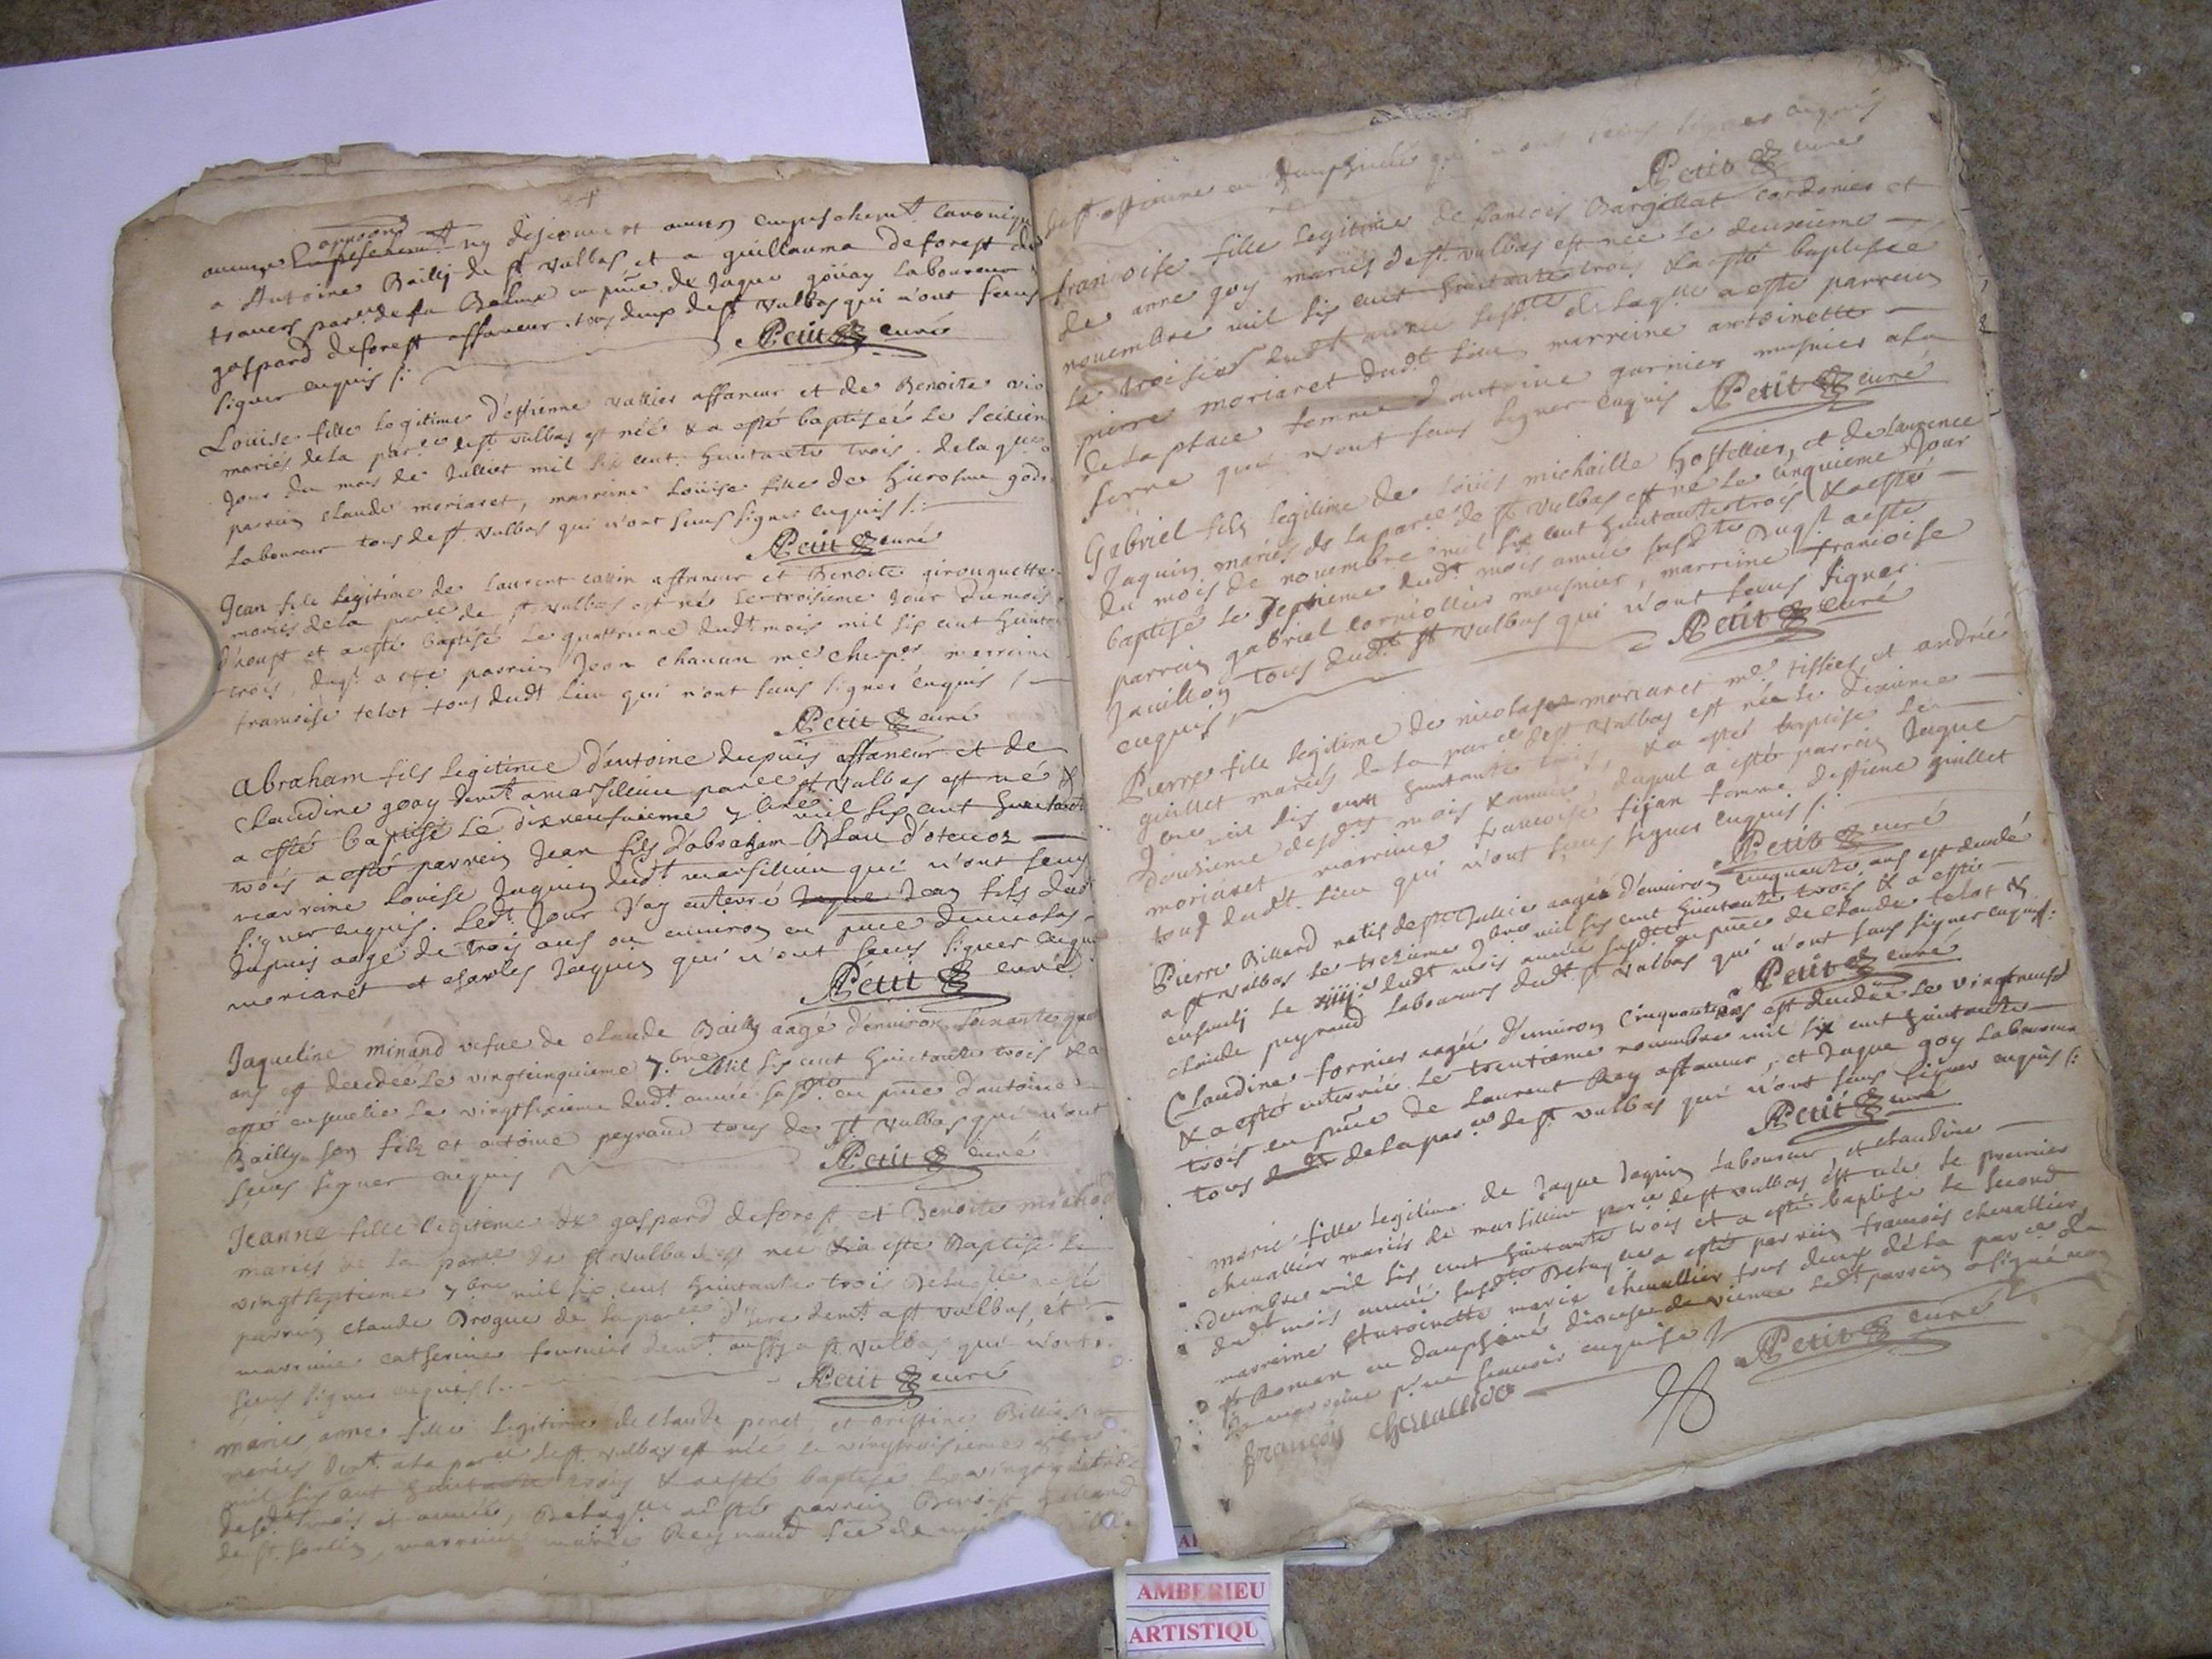 opposon
aucune Empeschem.t ny descouvert aucun empeschem.t canoniqu
a Antoine Bailly de St Vulbas et a guillauma deforest de
travers par.se de la Balme en p̃nce de Jaque goüay laboureur
gaspard deforest affaneur tous deux de St Vulbas qui n'ont sceus
signer enquis /:
Petit curé
Loüise fille legitime d'estienne vallier affaneur et de Benoite vio
mariés de la par.se de St vulbas est née & a esté baptiseé le seizien
jour du mois de Juillet mil six cent huictante trois. de laq.lle
parrain claude moriaret, marreine Loüise fille de hierosme god
laboureur tous de St. Vulbas qui n'ont sceus signer enquis /:
Petit curé
Jean fils legitime de laurent affaneur et Benoite girouquette
mariés de la par.se de St vulbas est nés le troisieme jour du mois
d'aoust et a esté baptisé le quattrieme dudt mois mil six cent huicta
trois, duq.l a esté parrein Jean chanun m.e charp.r marreine
francoise telot tous dudt lieu qui n'ont sceus signer enquis /
Petit curé
Abraham fils legitime d'antoine dupuis affaneur et de
claudine goay demt a marsillieu par.se St Vulbas est né &
a esté baptisé le dixneufvieme 7.bre mil six cent huictante
trois a esté parrein Jean fils d'abraham Blan d'oteuoz
marreine Louise Jaquin dudt marsillieu qui n'ont sceus
signer enquis. Ledt Jour J'ay enterré Jaque Jean fils dudt
dupuis aagé de trois ans ou environ en p̃nce de nicolas
moriaret et charles Jaquin qui n'ont sceus signer enqu
Petit curé
Jaqueline minand vefue de claude Bailly aagé d'environ soixante qua
ans est decedeé le vingtcinquieme 7.bre Mil six cent huictante trois & a
esté ensepvelie le vingtsixieme dudt année susd.te en p̃nce d'antoine
Bailly son filz et antoine peyraud tous de St Vulbas qui n'ont
sceus signer enquis
Petit curé
Jeanne fille legitime de gaspard deforest et Benoite michod
mariés de la par.se de St vulbas est née & a esté Baptisé le
vingtseptieme 7bre mil six cent huictante trois De laq.lle a esté
parrein claude Drogue de la par.se demt a St Vulbas, et
marreine catherine fournier demt aussy a St Vulbas qui n'ont
sceus signer enquis /:
Petit curé
Marie anne fille legitime de claude peret, et cristine Billie
mariés demt a la par.se de St vulbas est née le vingtroisieme
mil six cent huictante trois & a esté baptisée le vingtquatrie
desdts mois et année, De laq.lle a esté parrein Benoist
de St Sorlin, marreine marie Reymand
de St estienne en dauphiné qui n'ont sceus signer enquis
Petit curé
francoise fille legitime de francois Bargillat cordonier et
de anne goy mariés de St. vulbas est née le deuxieme
novembre mil six cent huictante trois & a esté baptisée
le troisie dudt année susd.te de laq.lle a esté parrein
pierre moriaret dudt lieu marreine antoinette
de la place femme d'antoine garnier musnier a la
serre qui n'ont sceus signer enquis
Petit curé
Gabriel fils legitime de Loüis michaille hostellier, et de laurence
Jaquin mariés de la par.se de St vulbas est né le cinquieme Jour
du mois de novembre mil six cent huictante trois & a esté
baptisé le septieme dudt mois année susd.te Duq.l a esté
parrein gabriel cornollier meusnier, marreine francoise
Javillon tous dudt St vulbas qui n'ont sceus signer
enquis
Petit curé
Pierre fils legitime de nicolas moriaret m.e tissier, et andrée
guillet mariés de la par.se de St Vulbas est né le dixieme
9bre mil six cent huictante trois, & a esté baptisé le
douzieme desdts mois & année, duquel a esté parrein Jaque
moriaret marreine francoise tijan femme d'estiene guillet
tous dudt lieu qui n'ont sceus signer enquis /:
Petit curé
Pierre Billard natif de Ste Julie aagés d'environ cinquante ans est decedé
a St vulbas le trezieme 9bre mil six cent huictante trois & a esté
ensevely le xiiij.e dudt mois année susd.te en p̃nce de claude telot &
claude peyraud laboureurs dudt St vulbas qui n'ont sceus signer enquis /:
Petit curé
Claudine fornier aagée d'environ cinquante ans est decedée le vingtneuf
& a esté enterrée le trentieme novembre mil six cent huictante
trois en p̃nce de laurent Rey affaneur, et Jaque goy laboureur
tous dudt de la par.se de St vulbas qui n'ont sceus signer enquis /:
Petit curé
Marie fille legitime de Jaque Jaquin laboureur, et claudine
chevallier mariés de marsillieu par.se de St vulbas est née le premier
decembre mil six cent huictante trois et a esté baptisé le second
dudt mois année susd.te De laq.lle a esté parrein francois chevallier
marreine Antoinette marie chevallier tous deux de la par.se de
St Roman en dauphiné diocese de vienne ledt parrein a signé non
la marreine p.r ne scavoir enquise /
Petit curé
françois chevallier
AMBERIEU
ARTISTIQU